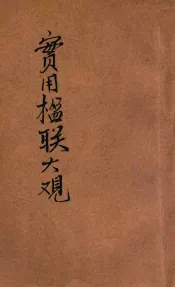 實用楹联大观